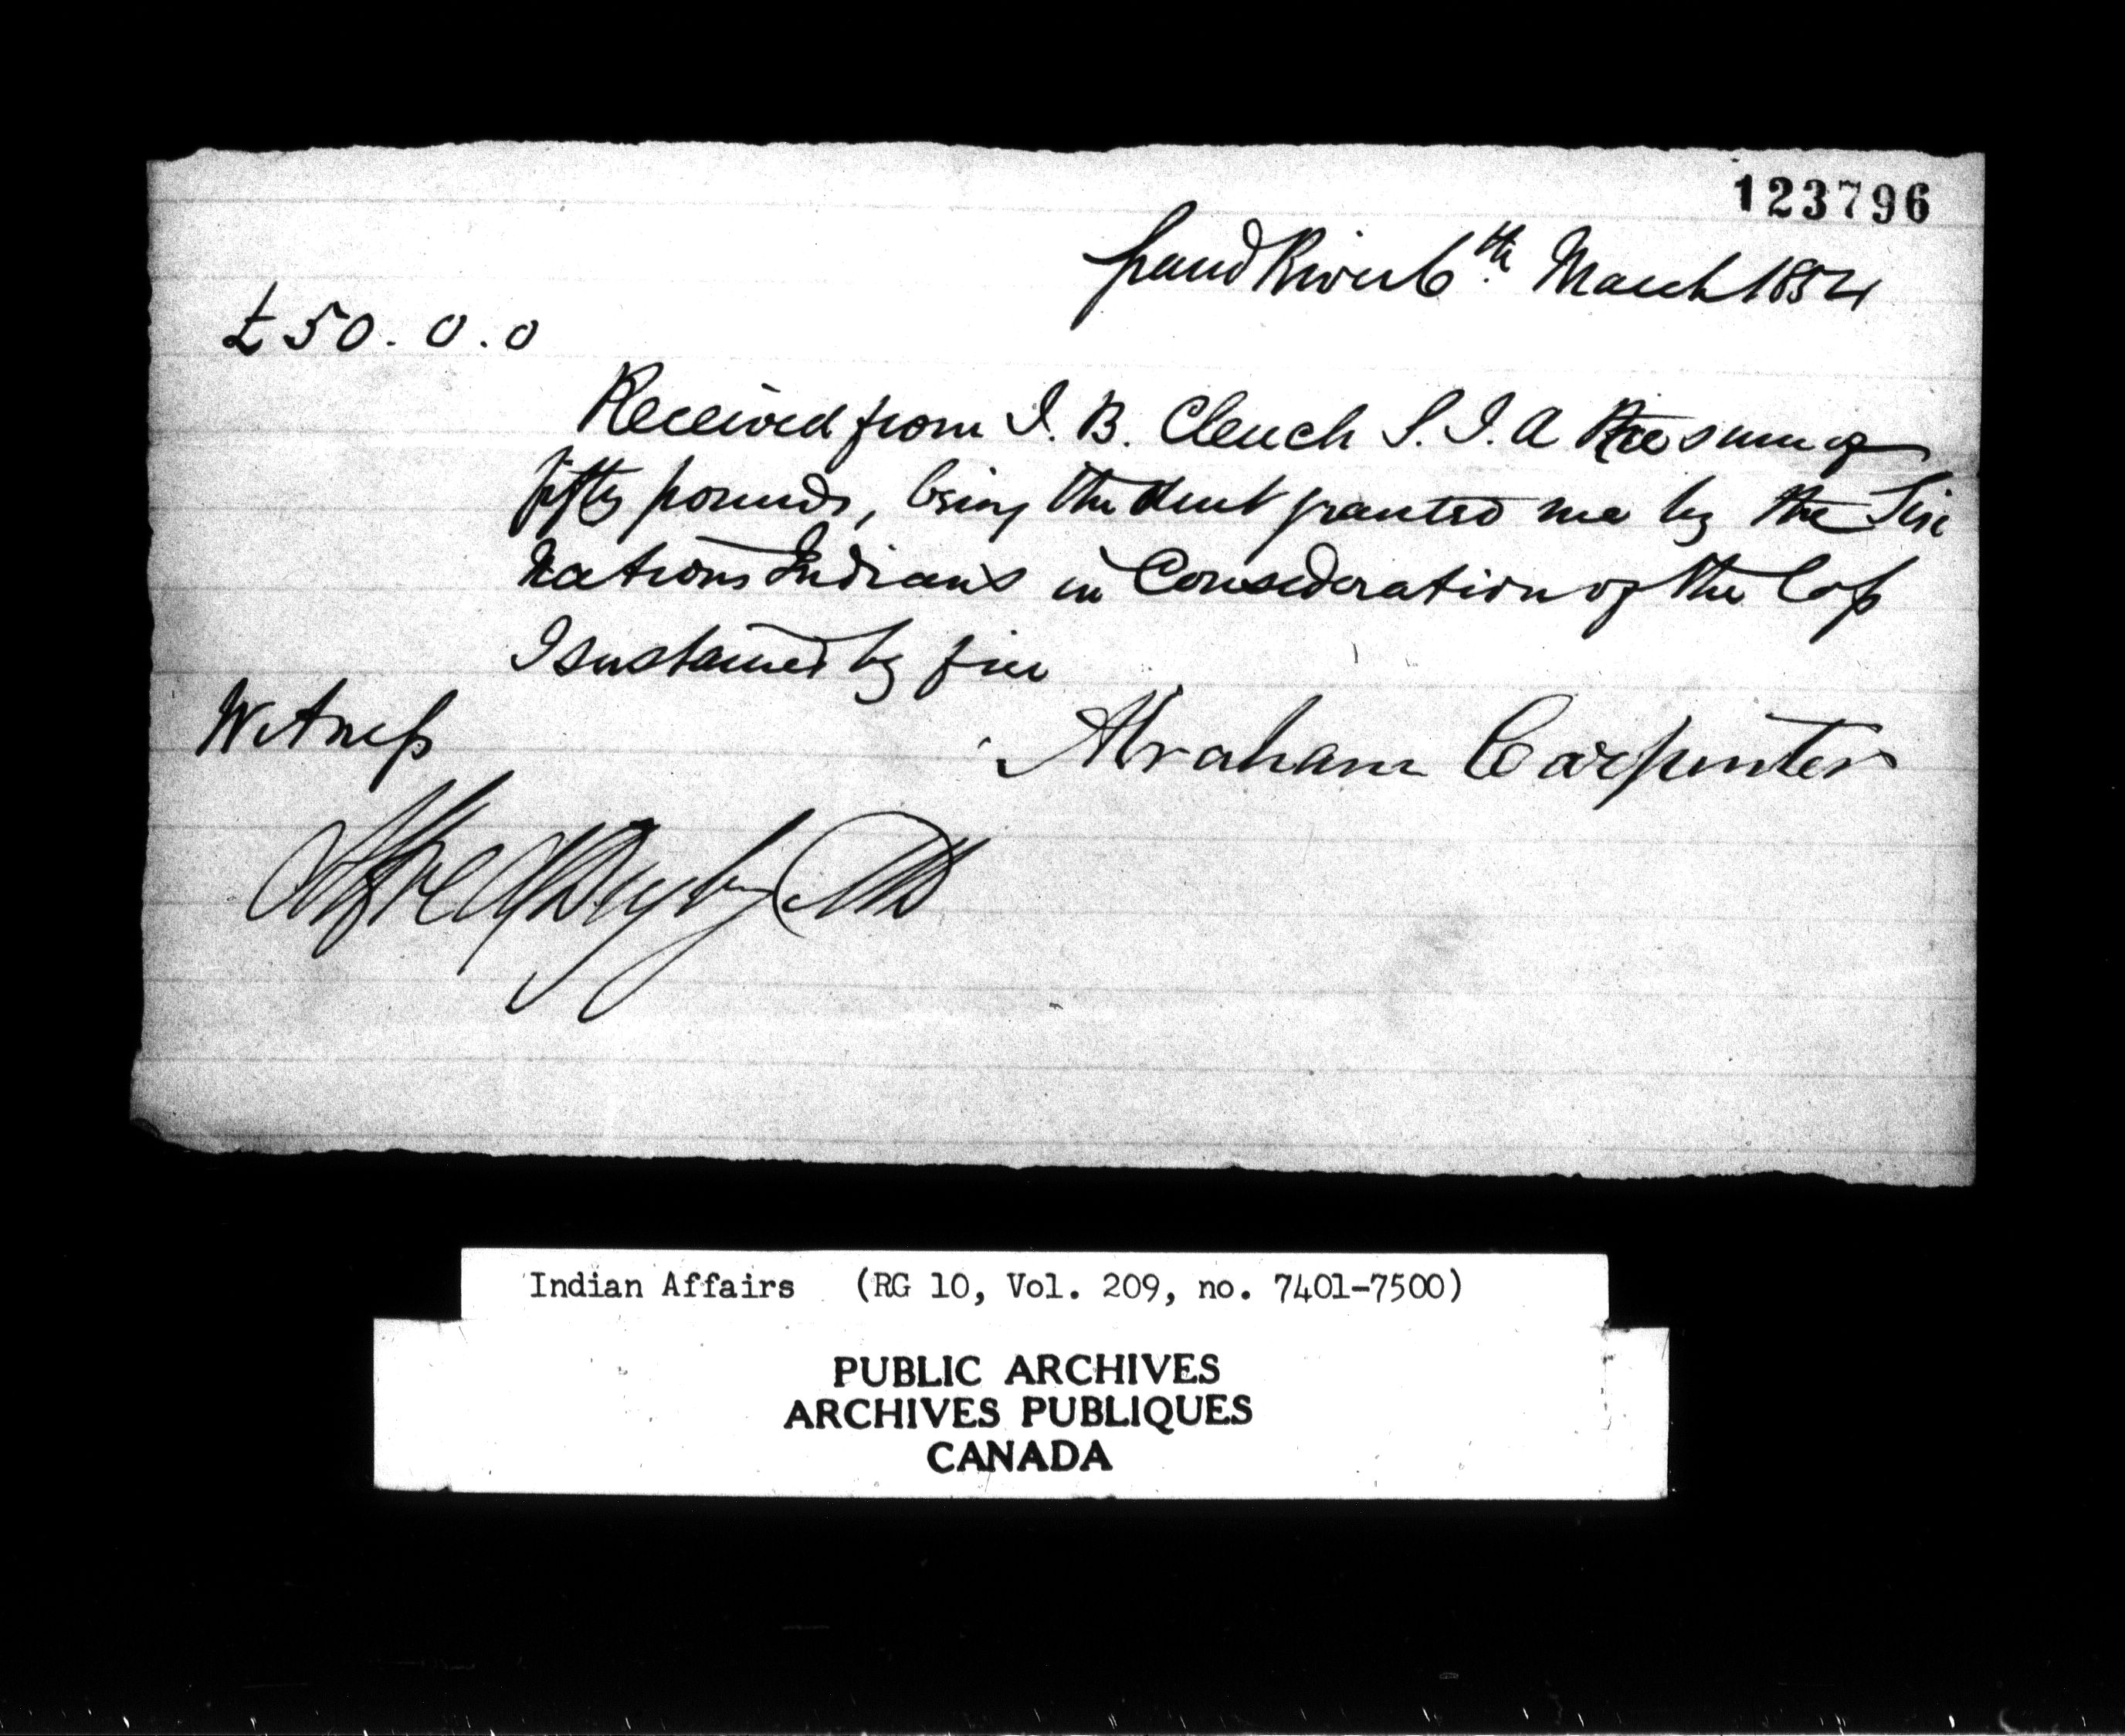 123796
Grand River 6th. March 1854
£50. 0. 0
Received from J. B. Clench S. I. A the sum of
fifty pounds, being the amt granted me by the Six
Nations Indians in Consideration of the Loss
I sustained by fire
Witness
Abraham Carpenter
Alfred Digby MD
Indian Affairs (RG 10, Vol. 209, no. 7401-7500)
PUBLIC ARCHIVES
ARCHIVES PUBLIQUES
CANADA